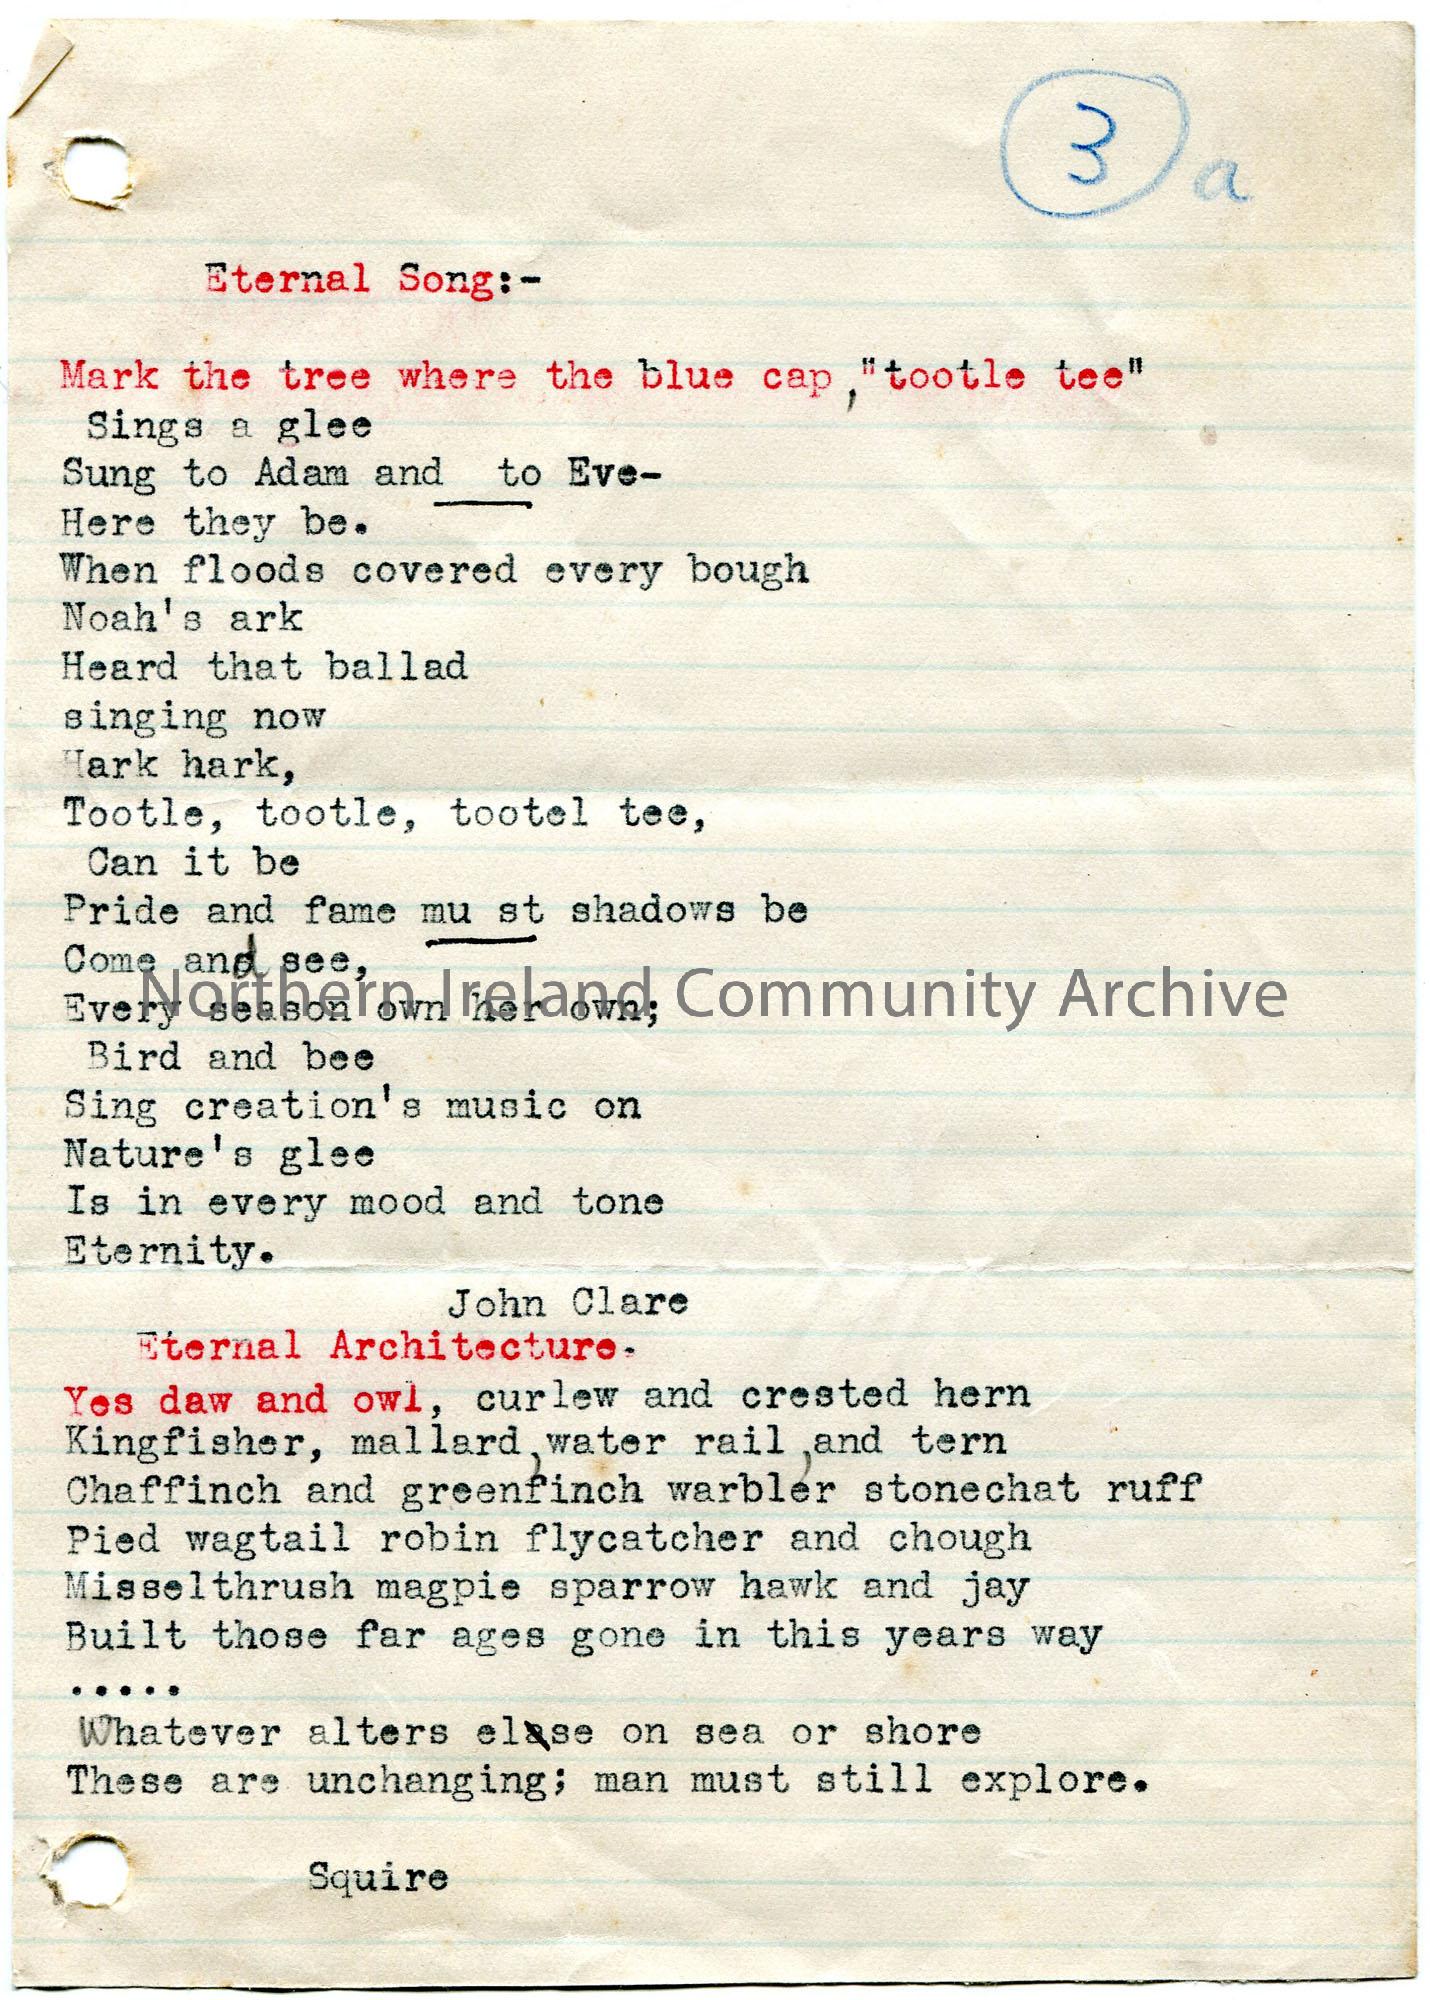 3 a
Eternal Song:-
Mark the tree where the blue cap,"tootle tee"
Sings a glee
Sung to Adam and to Eve-
Here they be.
When floods covered every bough
Noah's ark
Heard that ballad
singing now
Hark hark,
Tootle, tootle, tootel tee,
Can it be
Pride and fame mu st shadows be
Come and see,
Northern Ireland Community Archive
Every season own her own;
Bird and bee
Sing creation's music on
Nature's glee
Is in every mood and tone
Eternity.
John Clare
Eternal Architecture.
Yes daw and owl, curlew and crested hern
Kingfisher, mallard, water rail, and tern
Chaffinch and greenfinch warbler stonechat ruff
Pied wagtail robin flycatcher and chough
Misselthrush magpie sparrow hawk and jay
Built those far ages gone in this years way
.....
Whatever alters else on sea or shore
These are unchanging; man must still explore.
Squire